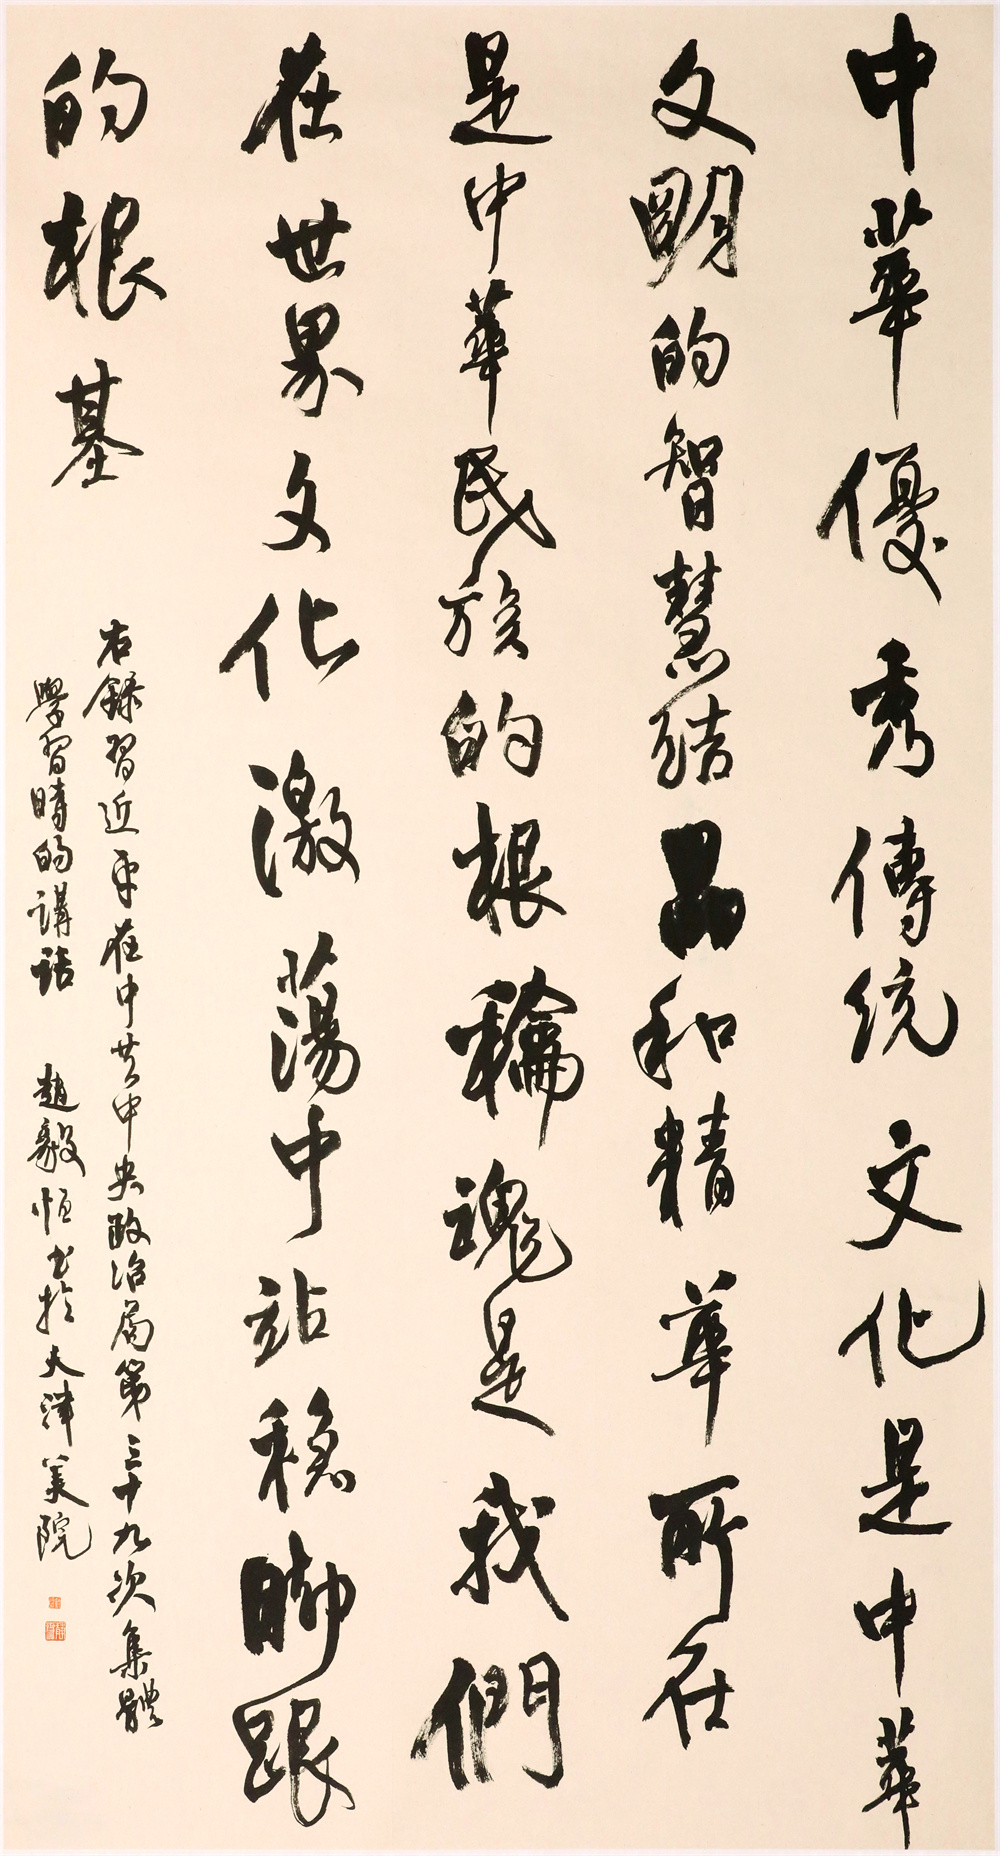 中華優秀傳統文化是中華
文明的智慧結晶和精華所在
是中華民族的根龢魂是我們
在世界文化激蕩中站穩腳跟
的根基
右錄習近平在中共中央政治局第三十九次集體
學習時的講話 趙毅恒書於天津美院